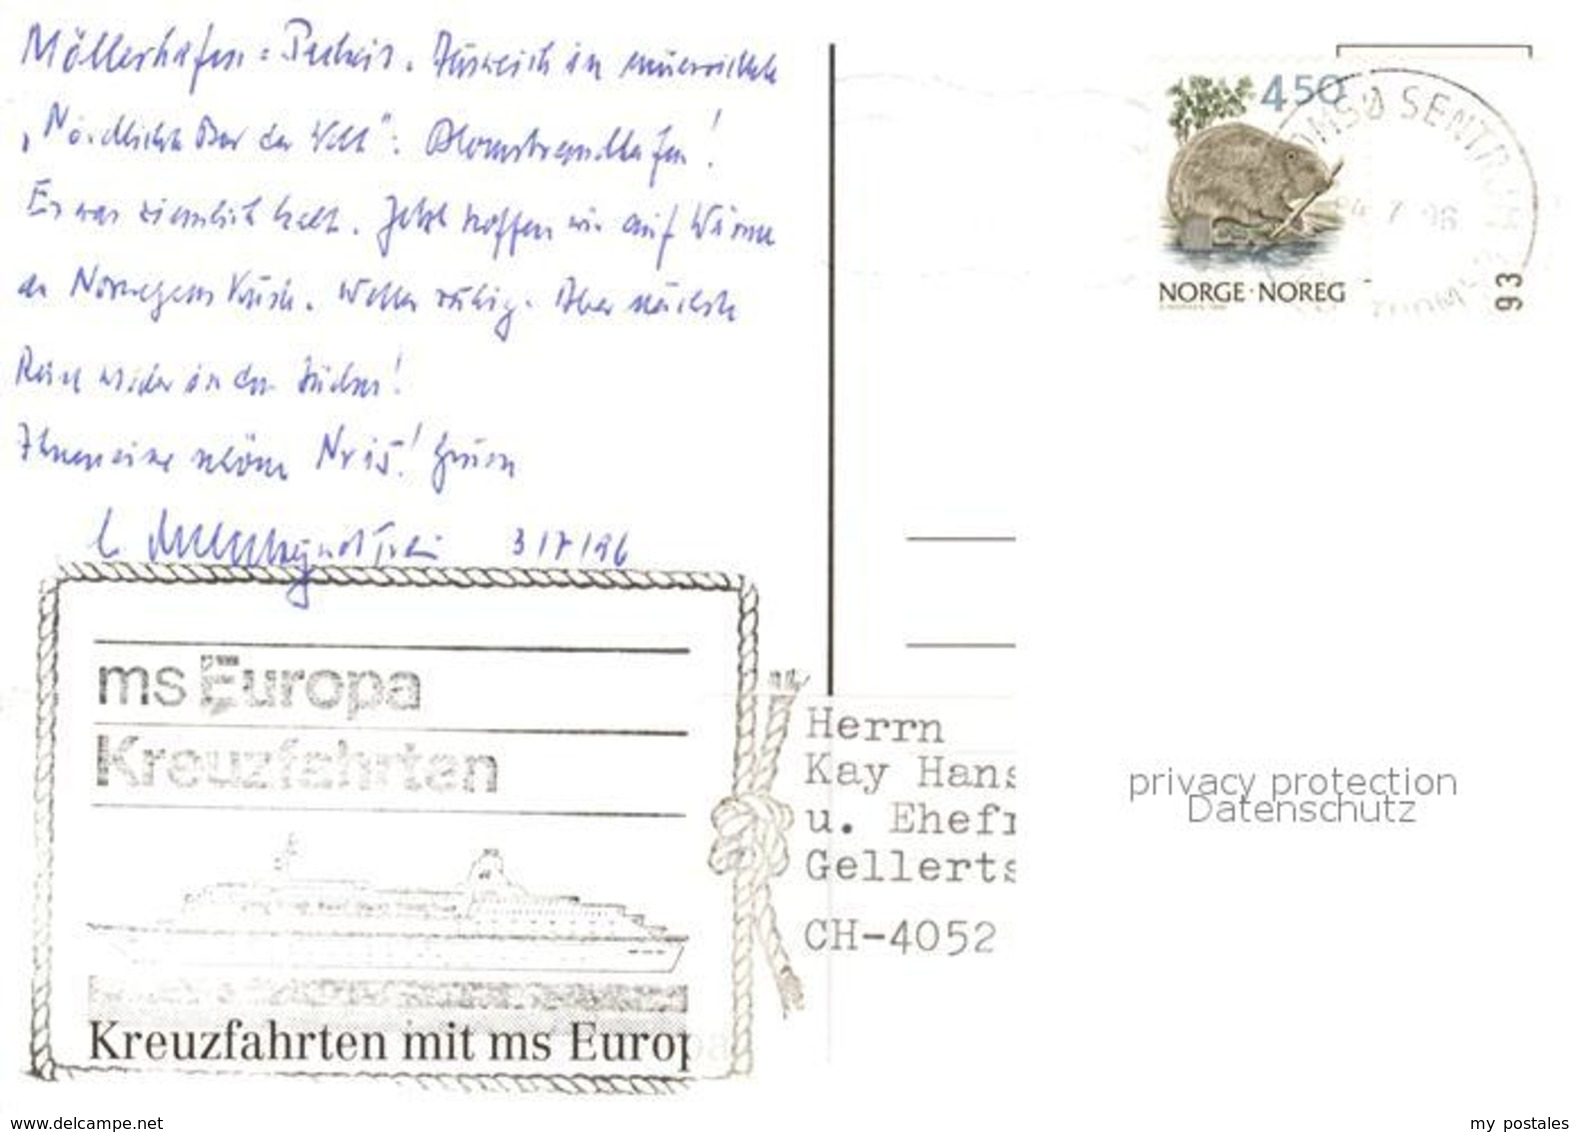 Möllerhafen = Pech. in
"Nördlichste Bar der Welt": Blomstrandhafen!
Es war ziemlich kalt. Jetzt hoffen wir auf Wärme
an Norwegens Küste. Wetter ruhig. Aber nächste
Reise wieder in den Süden!
Ihnen eine schöne Zeit!
3/7/96
4 50
OMSØ SENTRUM
7 96
NORGE · NOREG
93
ms Europa
Kreuzfahrten
Kreuzfahrten mit ms Europa
Herrn
Kay Hans
u. Ehefr
Gellerts
CH-4052
privacy protection
Datenschutz
www.delcampe.net
my postales